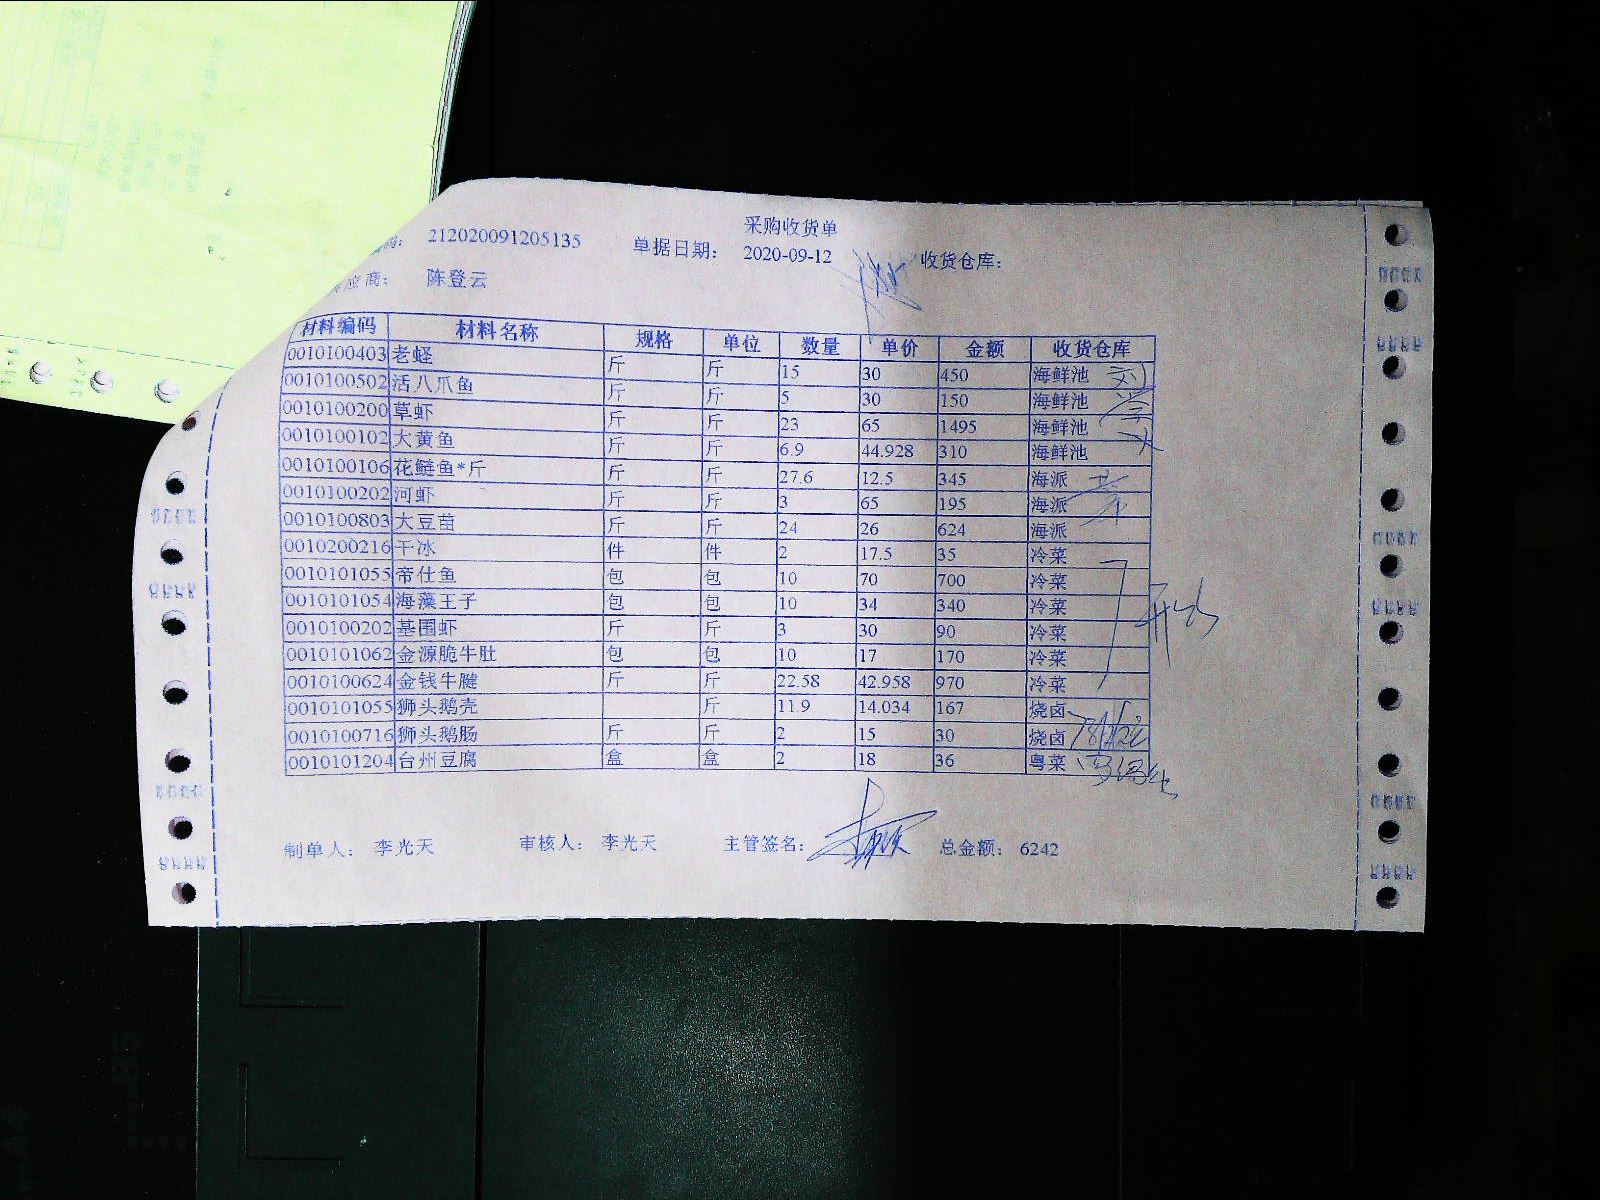 采购收货单
码: 212020091205135 单据日期: 2020-09-12 收货仓库:
应商: 陈登云
材料编码 材料名称 规格 单位 数量 单价 金额 收货仓库
0010100403 老蛏 斤 斤 15 30 450 海鲜池 刘
0010100502 活八爪鱼 斤 斤 5 30 150 海鲜池
0010100200 草虾 斤 斤 23 65 1495 海鲜池
0010100102 大黄鱼 斤 斤 6.9 44.928 310 海鲜池
0010100106 花鲢鱼*斤 斤 斤 27.6 12.5 345 海派
0010100202 河虾 斤 斤 3 65 195 海派
0010100803 大豆苗 斤 斤 24 26 624 海派
0010200216 干冰 件 件 2 17.5 35 冷菜
0010101055 帝仕鱼 包 包 10 70 700 冷菜
0010101054 海藻王子 包 包 10 34 340 冷菜
0010100202 基围虾 斤 斤 3 30 90 冷菜
0010101062 金源脆牛肚 包 包 10 17 170 冷菜
0010100624 金钱牛腱 斤 斤 22.58 42.958 970 冷菜
0010101055 狮头鹅壳 斤 11.9 14.034 167 烧卤
0010100716 狮头鹅肠 斤 斤 2 15 30 烧卤
0010101204 台州豆腐 盒 盒 2 18 36 粤菜
制单人: 李光天 审核人: 李光天 主管签名: 总金额: 6242